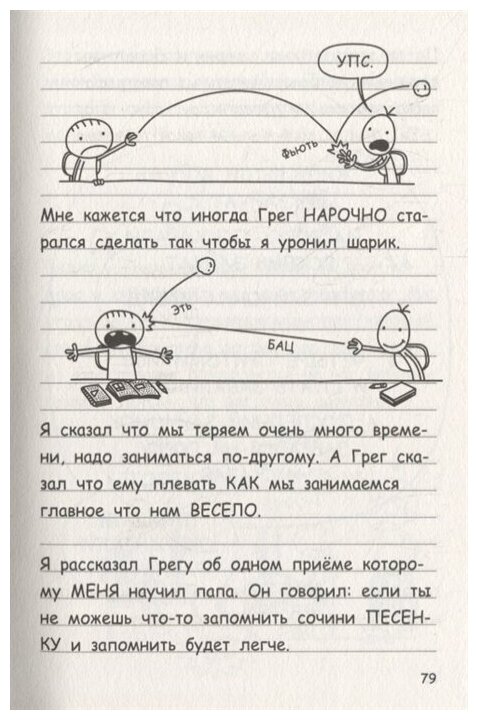 УПС.
ФЬЮТЬ
Мне кажется что иногда Грег НАРОЧНО ста-
рался сделать так чтобы я уронил шарик.
ЭТЬ
БАЦ
Я сказал что мы теряем очень много време-
ни, надо заниматься по-другому. А Грег ска-
зал что ему плевать КАК мы занимаемся
главное что нам ВЕСЕЛО.
Я рассказал Грегу об одном приёме которо-
му МЕНЯ научил папа. Он говорил: если ты
не можешь что-то запомнить сочини ПЕСЕН-
КУ и запомнить будет легче.
79